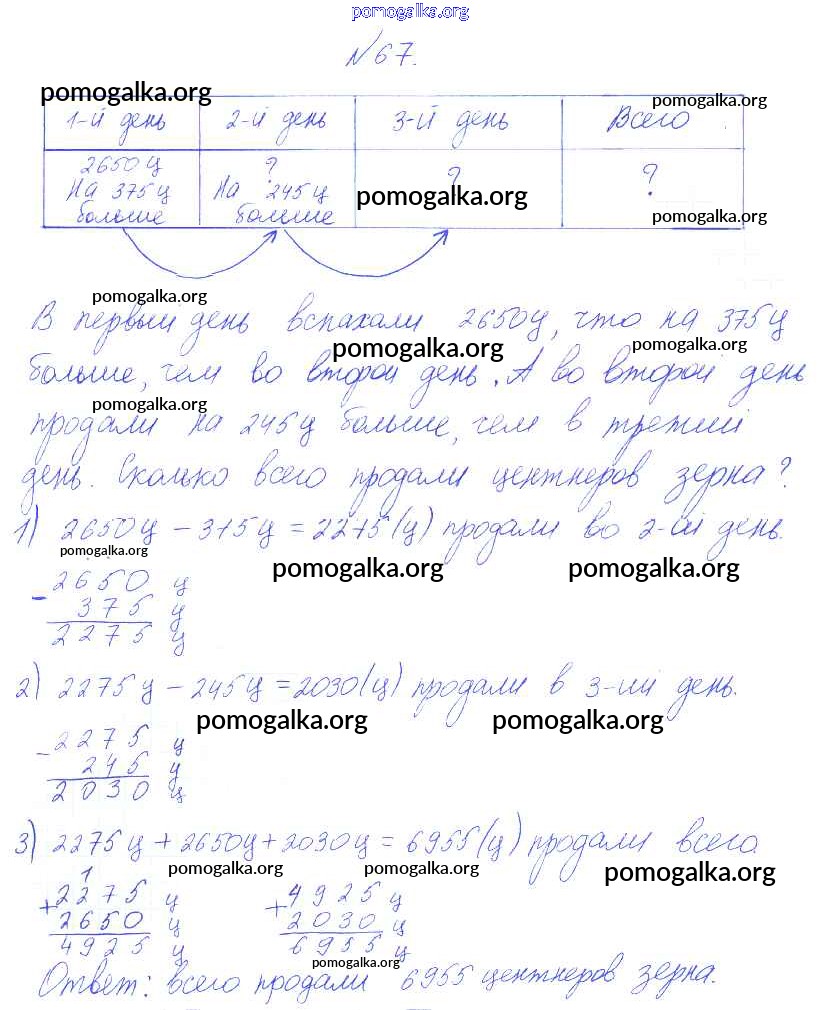 pomogalka.org
№67.
pomogalka.org pomogalka.org
1-й день 2-й день 3-й день Всего
2650ц ? ? ?
На 375ц На 245ц pomogalka.org
больше больше pomogalka.org
pomogalka.org
В первый день вспахали 2650ц, что на 375ц
pomogalka.org pomogalka.org
больше, чем во второй день. А во второй день
pomogalka.org
продали на 245ц больше, чем в третий
день. Сколько всего продали центнеров зерна?
1) 2650ц - 375ц = 2275(ц) продали во 2-ой день.
pomogalka.org pomogalka.org pomogalka.org
- 2650 ц
375 ц
2275 ц
2) 2275ц - 245ц = 2030(ц) продали в 3-ий день.
pomogalka.org pomogalka.org
- 2275 ц
245 ц
2030 ц
3) 2275ц + 2650ц + 2030ц = 6955(ц) продали всего.
pomogalka.org pomogalka.org pomogalka.org
1
+ 2275 ц + 4925 ц
2650 ц 2030 ц
4925 ц 6955 ц
pomogalka.org
Ответ: всего продали 6955 центнеров зерна.